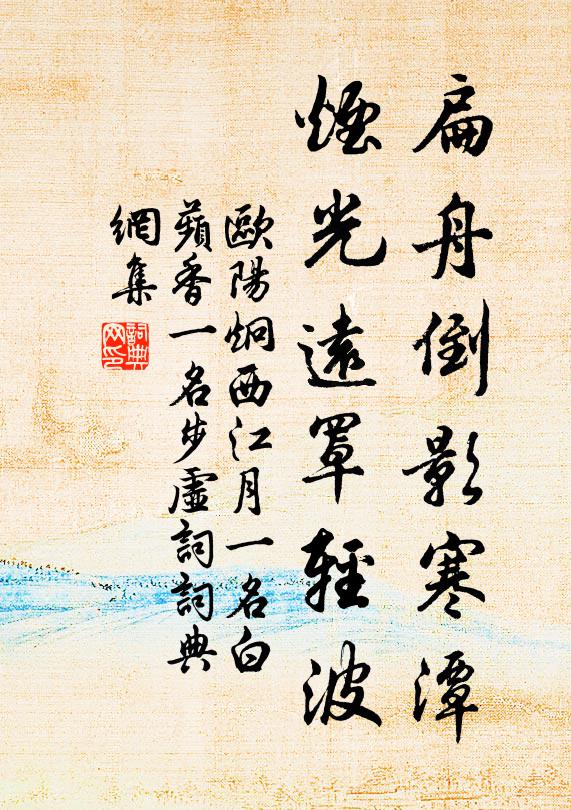 扁舟倒影寒潭
煙光遠罩輕波
歐陽炯西江月一名白
蘋香一名步虛詞詞典
網集
詞典
网印